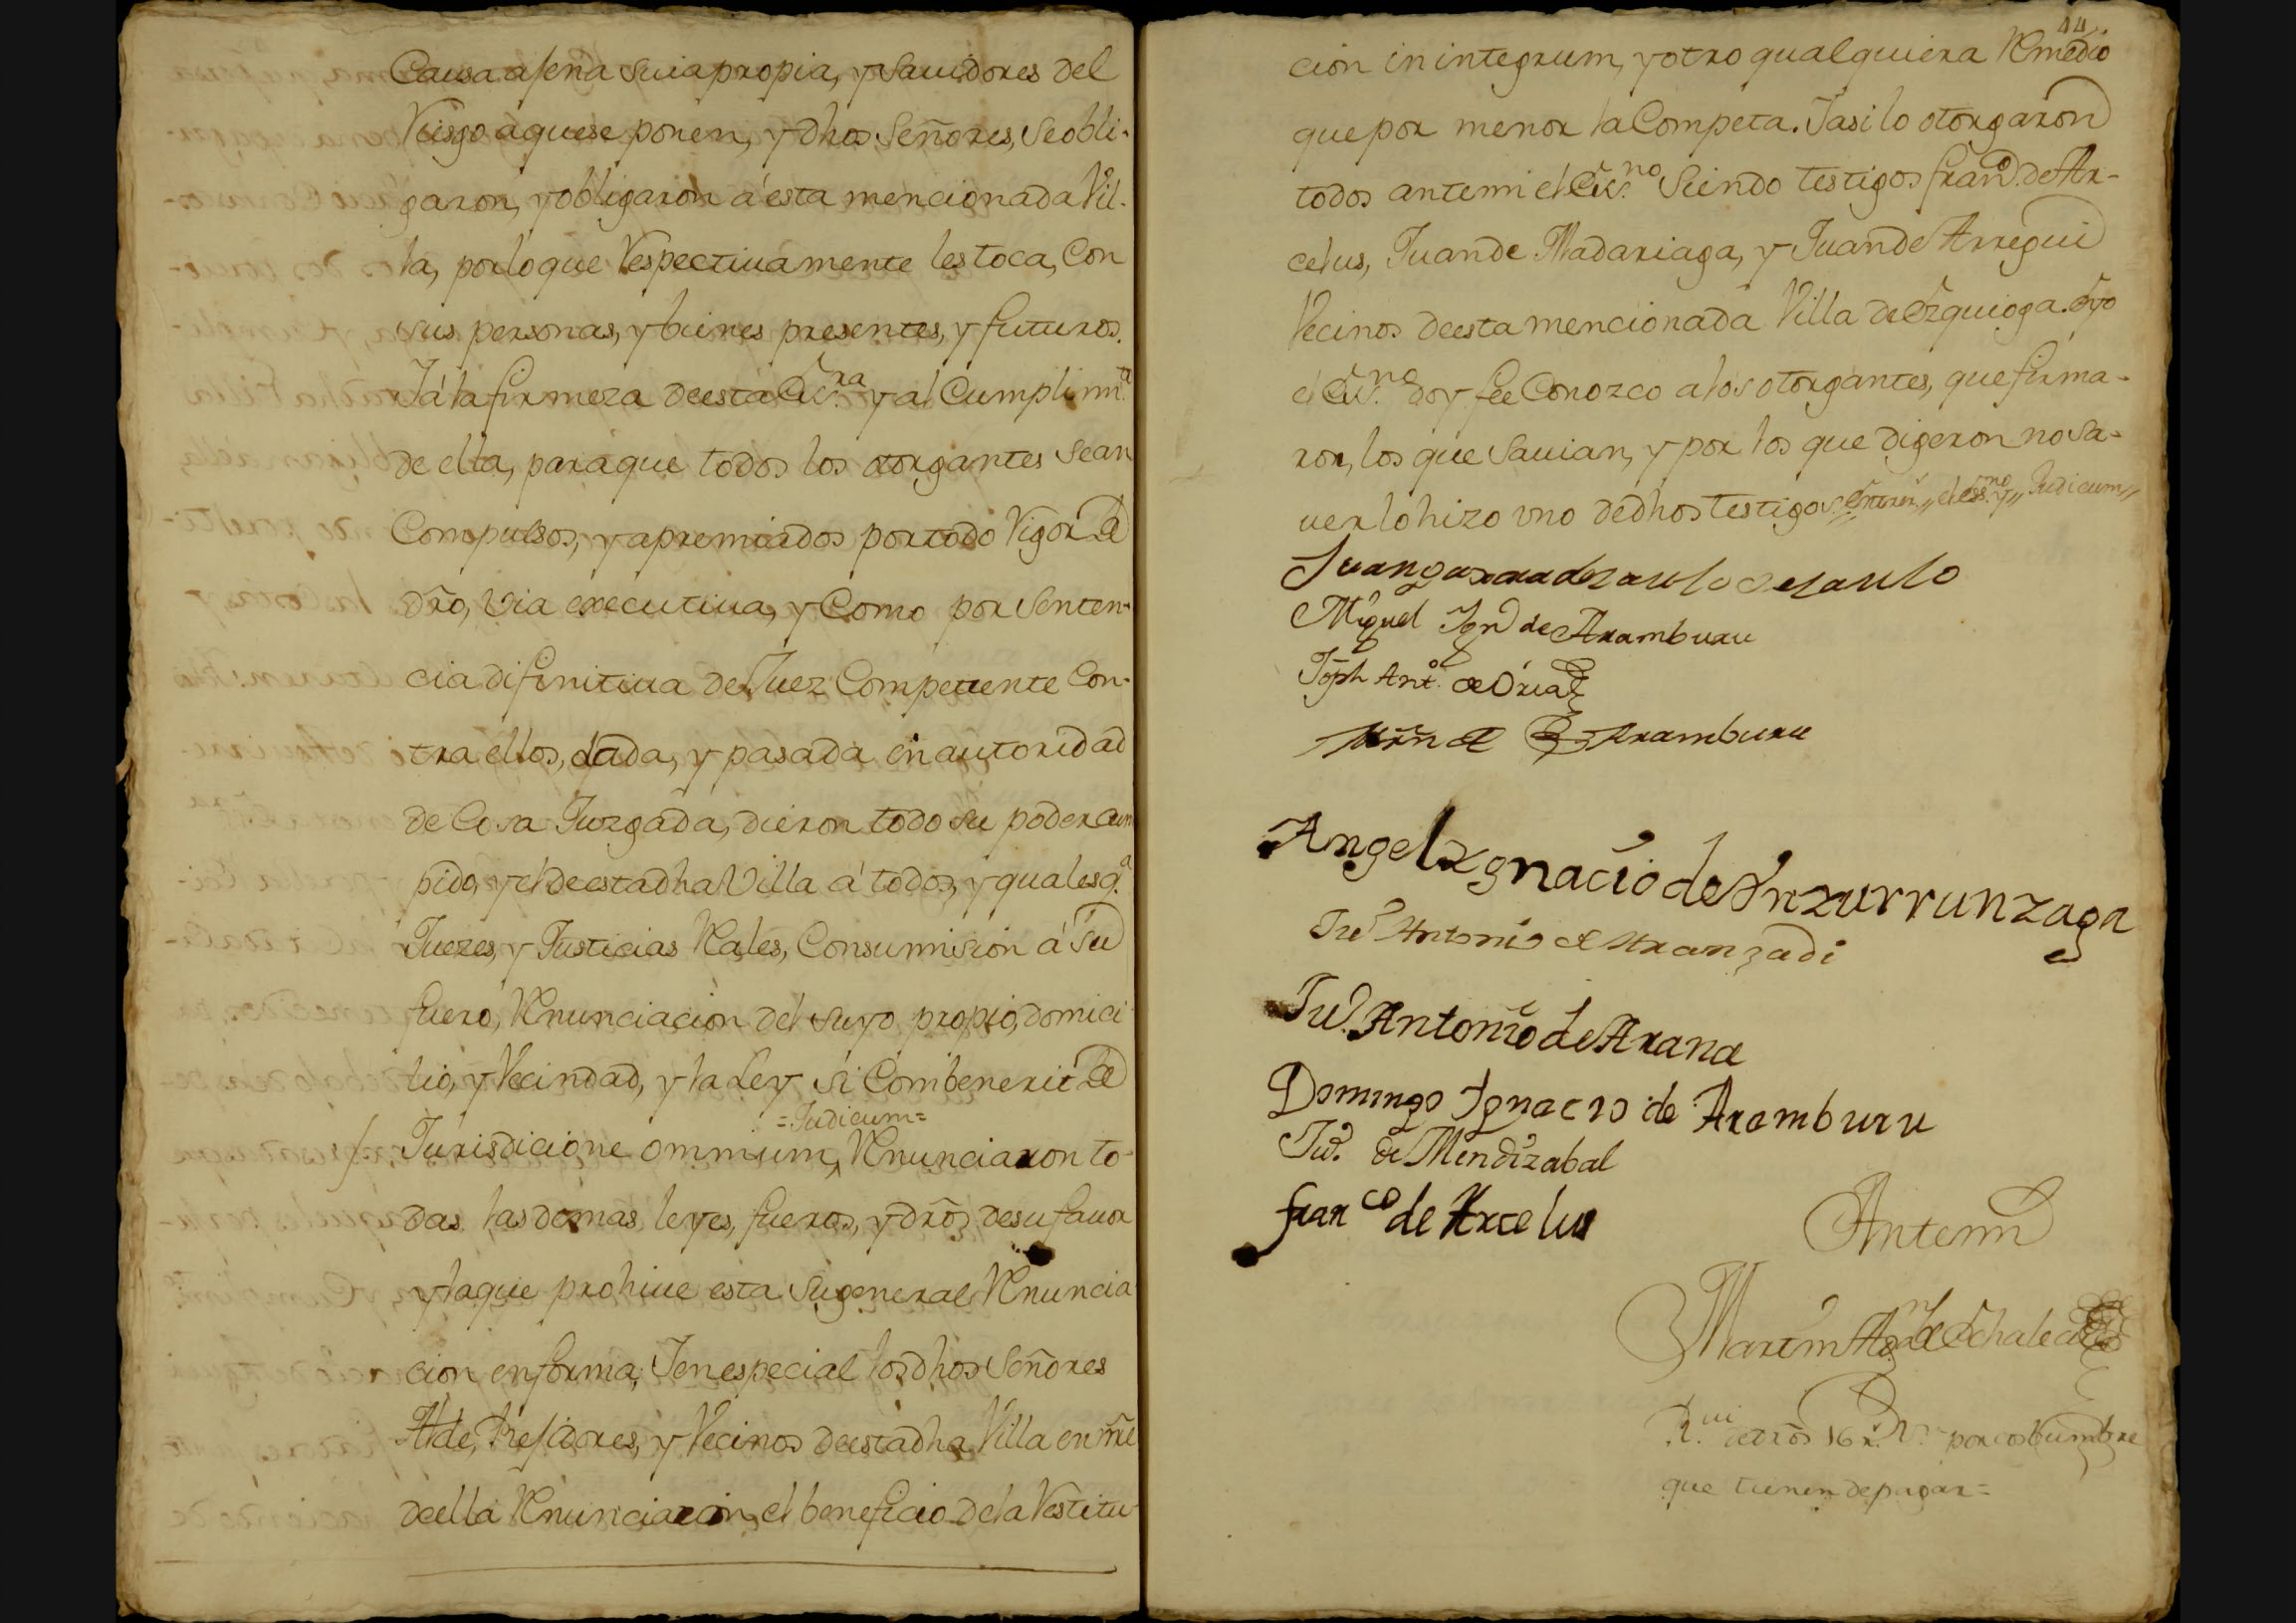 Causa ajena suia propia, y Sauidores del
Riesgo aquese ponen, y dhos Señores, se obli-
garon, y obligaron á esta mencionada Vil-
la, por lo que Respectiuamente les toca, Con
sus personas, y bienes presentes, y futuros.
Y á la firmeza de esta Escra. y al Cumplimto.
de ella, para que todos los otorgantes sean
Compulsos, y apremiados por todo Vigor de
dro, Via executiua, y Como por Senten-
cia difinitiua de Juez Competente Con-
tra ellos, dada, y pasada en autoridad
de Cosa Juzgada, dieron todo su poder cum
pido, y el de esta dha Villa á todos, y qualesqa.
Juezes, y Justicias Rales, Consumision á su
fuero, Renunciacion del suyo propio, domici
lio, y Vecindad, y la Ley si Combenerit de
=Judicum=
Jurisdicione ommium, Renunciaron to-
das las demas leyes, fueros, y dros de su fauor
y la que prohiue esta su general Renuncia
cion en forma; Y en especial los dhos Señores
Alde, Rejidores, y Vecinos de esta dha Villa en nre
de ella Renunciaron, el beneficio de la Restitu
44
cion in integrum, y otro qualquiera Remedio
que por menor la Competa. Y asi lo otorgaron
todos ante mi el Escno. Siendo Testigos Franco. de Ar-
celus, Juan de Madariaga, y Juan de Arregui
Vecinos de esta mencionada Villa de Ezquioga. E yo
el Escno. doy fee Conozco a los otorgantes, que firma-
ron, los que sauian, y por los que digeron no sa-
uer lo hizo vno de dhos Testigos. Entrern. el essno. y Judicum
Juan
Miguel Ign de Aramburu
Joph Anto. de Oria
Mrn de Aramburu
Angel Ygnacio de Ynzurrunzaga
Jun Antonio de Aranzadi
Jun. Antonio de Arana
Domingo Ignacio de Aramburu
Jun. de Mendizabal
franco de Arcelus
Antemi
Martin Agn de Echaleco
Rui de dros 16 rs. por costumbre
que tienen de pagar=